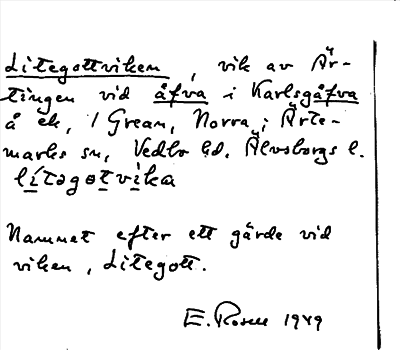 Litegottviken, vik av Är-
tingen vid åfva i Karlsgåfva
å ek, 1 Grean, Norra, i Ärte-
marks sn, Vedbo hd. Älvsborgs l.
lítəgotvika
Namnet efter ett gärde vid
viken, Litegott.
E. Rosell 1949